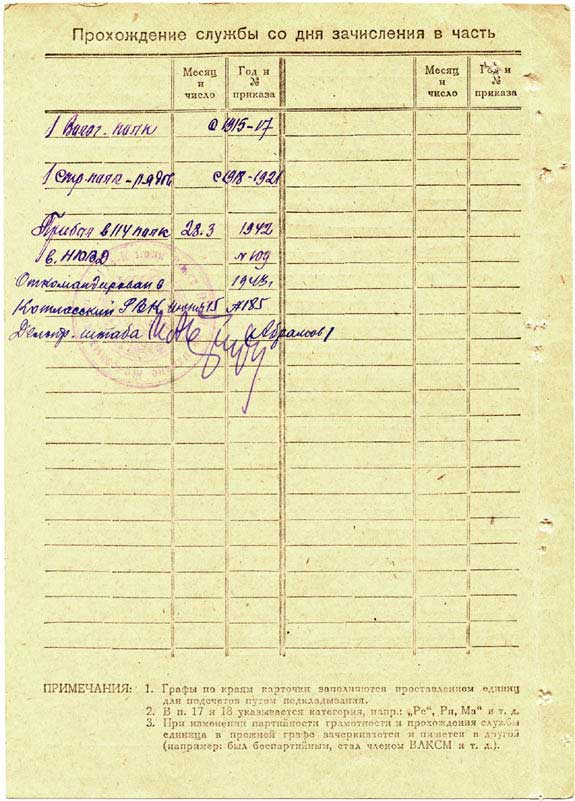 Прохождение службы со дня зачисления в часть
Месяц и число
Год и № приказа
Месяц и число
Год и № приказа
1 Волог. полк с 1915-17
1 Стр. полк - рядов. с 1918-1921
Прибыл в 114 полк 28.3 1942
в. НКВД № 109
Откомандирован в 1943г
Котласский РВК 15 №185
штаба
Абрамов
ПРИМЕЧАНИЯ: 1. Графы по краям карточки заполняются проставлением единиц
для подсчетов путем подкладывания.
2. В п. 17 и 18 указывается категория, напр.: „Ре“, Ря, Ма“ и т. д.
3. При изменении партийности грамотности и прохождения службы
единица в прежней графе зачеркивается и пишется в другой
(например: был беспартийным, стал членом ВЛКСМ и т. д.).